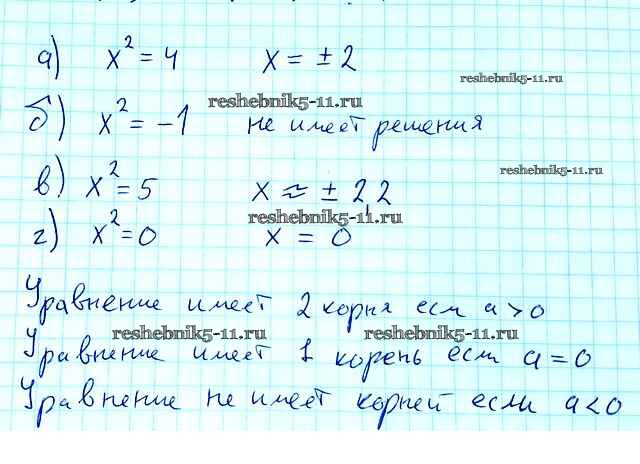 а) x² = 4 x = ± 2
reshebnik5-11.ru
reshebnik5-11.ru
б) x² = -1 не имеет решения
reshebnik5-11.ru
в) x² = 5 x ≈ ± 2,2
reshebnik5-11.ru
г) x² = 0 x = 0
Уравнение имеет 2 корня если a > 0
reshebnik5-11.ru reshebnik5-11.ru
Уравнение имеет 1 корень если a = 0
Уравнение не имеет корней если a < 0